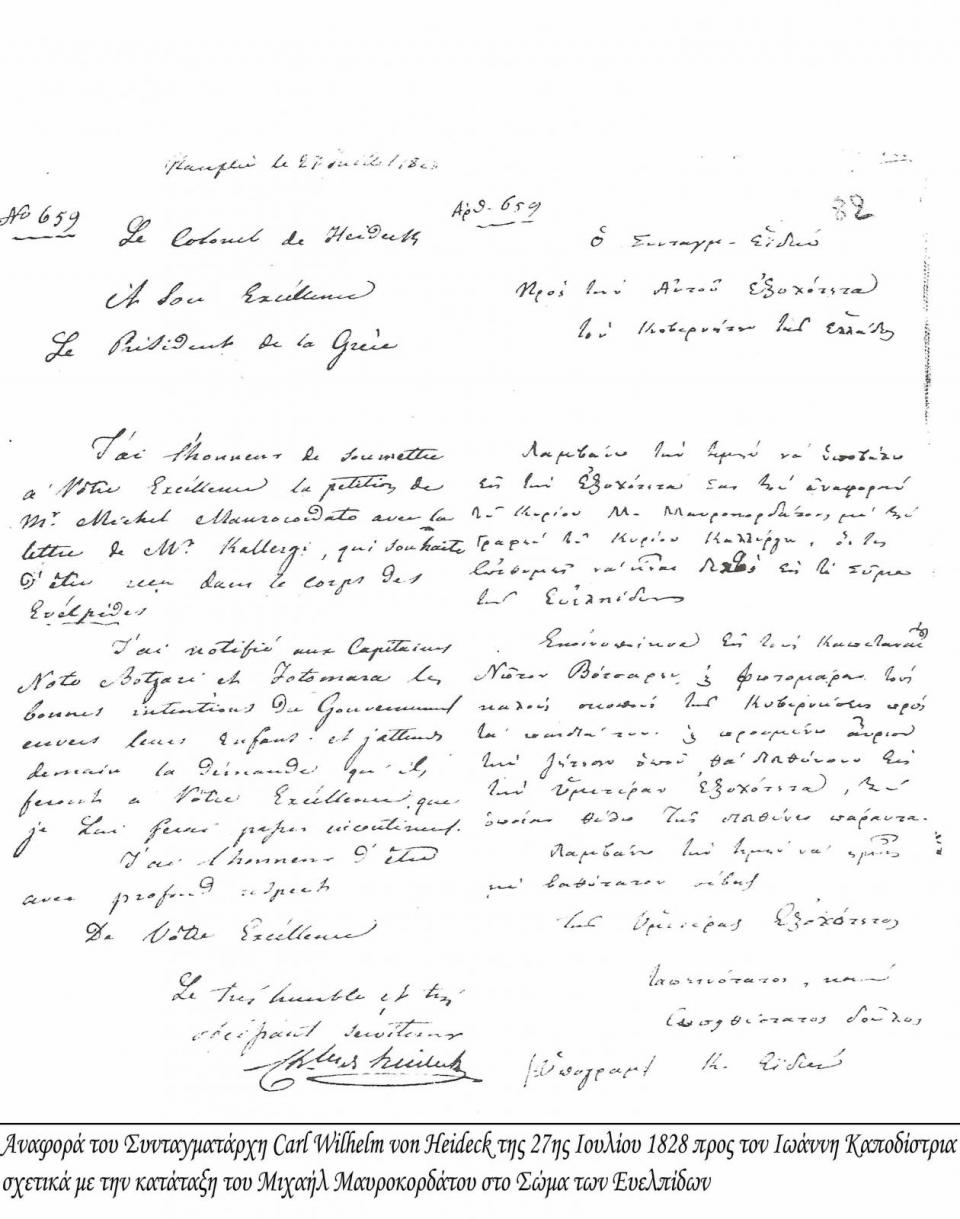 Nauplie le 27 Juillet 1828
No 659
Le Colonel de Heideck
A Son Excéllence
Le Président de la Grèce
J'ai l'honneur de soumettre
a Vôtre Excéllence la petition de
Mr. Michel Maurocordato avec la
lettre de Mr. Kallergi, qui souhaite
d'être reçu dans le corps des
Evélpides
J'ai notifié aux Capitaines
Noto Botzari et Fotomara les
bonnes intentions du Gouvernement
envers leurs enfans et j'attens
demain la démande qu'ils
feront a Vôtre Excéllence, que
je Lui ferai passer incontinent.
J'ai l'honneur d'être
avec profond respect
De Vôtre Excéllence
Le très humble et très
obéissant serviteur
Heideck
Αρθ. 659
82
ὁ Συνταγμ. Εϊδεκ
Πρὸς τὴν Αὐτοῦ Ἐξοχότητα
τὸν Κυβερνήτην τῆς Ἑλλάδος
Λαμβάνω τὴν τιμὴν νὰ ὑποβάλω
εἰς τὴν Ἐξοχότητά σας τὴν ἀναφορὰν
τοῦ Κυρίου Μ. Μαυροκορδάτου, μὲ τὸ
γραφὲν τοῦ Κυρίου Καλλέργη, ὅστις
ἐπιθυμεῖ νὰ εἰς τὸ Σῶμα
τῶν Εὐελπίδων
Ἐκοινοποίησα εἰς τοὺς Καπετανέους
Νότον Βότσαρην, & Φωτομάραν τοὺς
καλοὺς σκοποὺς τῆς Κυβερνήσεως πρὸς
τὰ παιδιά των. & προσμένω αὔριον
τὴν ζήτησιν ὁποῦ θὰ εἰς
τὴν Ὑμετέραν Ἐξοχότητα, τὴν
ὁποίαν θέλω τῆς πάραυτα.
Λαμβάνω τὴν τιμὴν νὰ
μὲ βαθύτατον σέβας
τῆς Ὑμετέρας Ἐξοχότητος
ταπεινότατος, καὶ
εὐπειθέστατος δοῦλος
(Ὑπογραφ) Κ. Εϊδεκ
Αναφορά του Συνταγματάρχη Carl Wilhelm von Heideck της 27ης Ιουλίου 1828 προς τον Ιωάννη Καποδίστρια
σχετικά με την κατάταξη του Μιχαήλ Μαυροκορδάτου στο Σώμα των Ευελπίδων